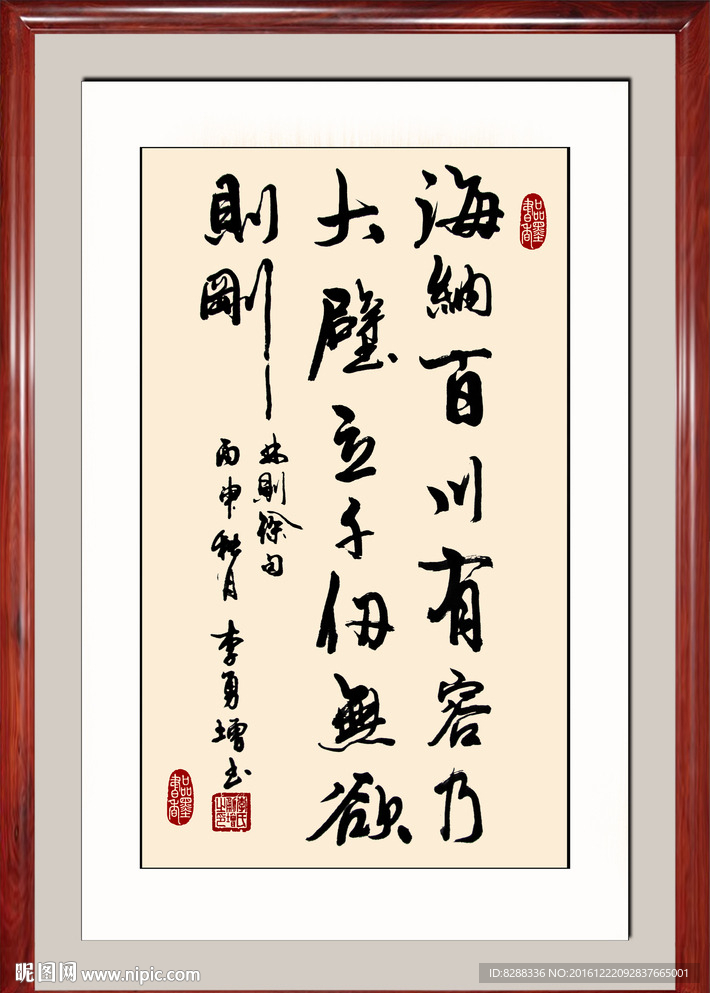 海納百川有容乃
大壁立千仞無欲
則剛
林則徐句
丙申秋月李勇增书
品墨書香
品墨書香
昵图网 www.nipic.com
ID:8288336 NO:20161222092837665001